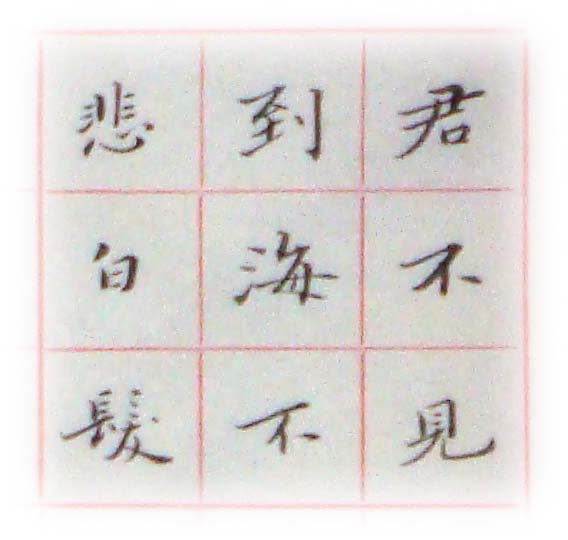 君不見
到海不
悲白髮